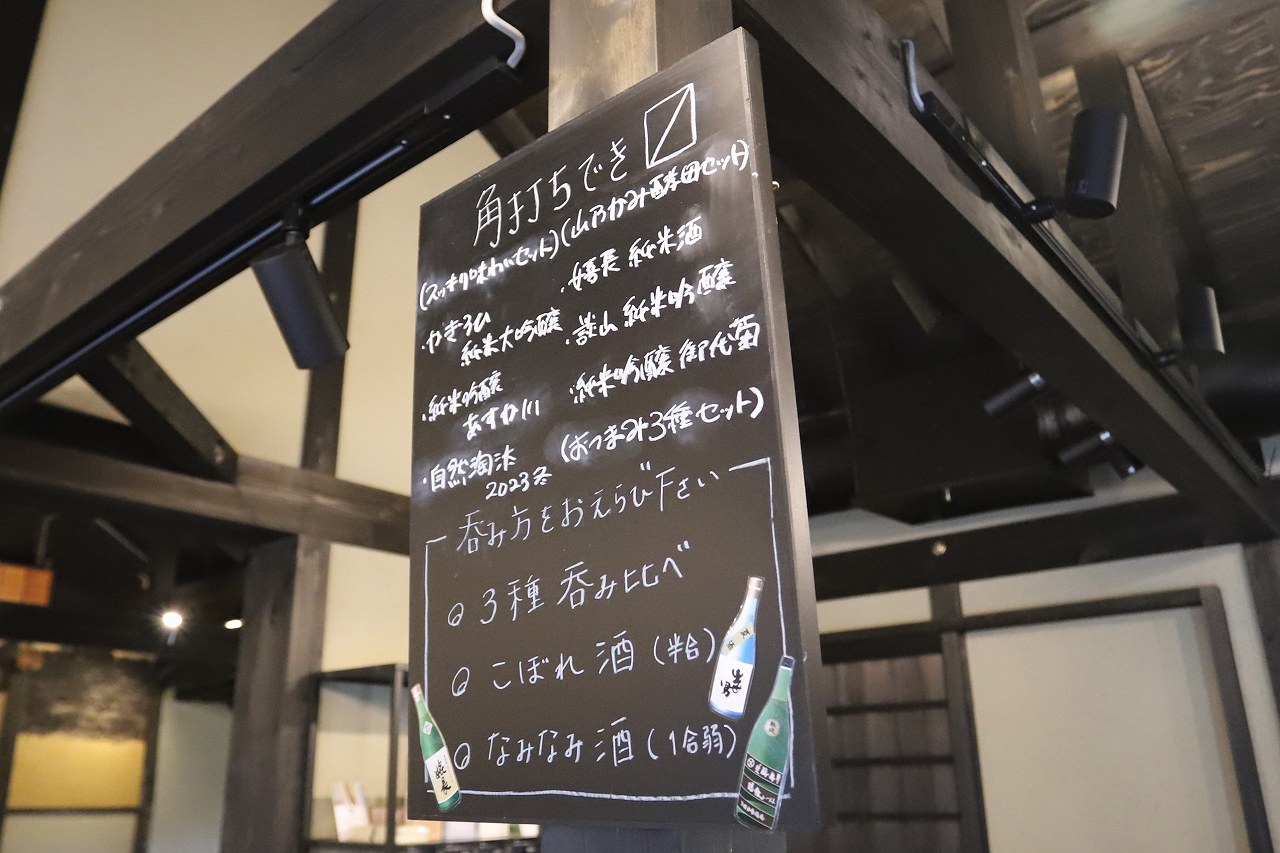 角打ちでき〼
(スッキリ味わいセット)
・やきろひ
純米大吟醸
・純米吟醸
あすか川
・自然淘汰
2023冬
(山乃かみ酵母セット)
・嬉長 純米酒
・談山 純米吟醸
・純米吟醸 御代菊
(おつまみ3種セット)
呑み方をおえらび下さい
3種 呑み比べ
こぼれ酒(半合)
なみなみ酒(1合弱)
嬉長